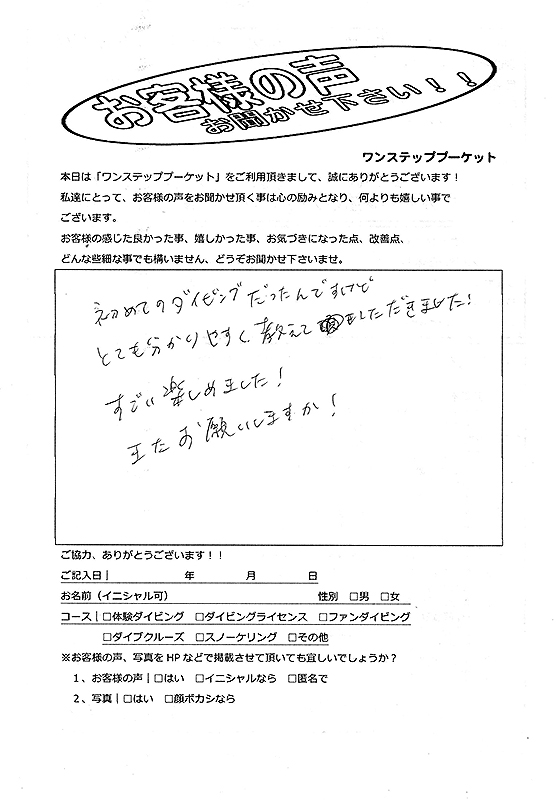 お客様の声
お聞かせ下さい！！
ワンステッププーケット
本日は「ワンステッププーケット」をご利用頂きまして、誠にありがとうございます！
私達にとって、お客様の声をお聞かせ頂く事は心の励みとなり、何よりも嬉しい事で
ございます。
お客様の感じた良かった事、嬉しかった事、お気づきになった点、改善点、
どんな些細な事でも構いません、どうぞお聞かせ下さいませ。
初めてのダイビングだったんですけど
とても分かりやすく教えていただきました！
すごい楽しめました！
またお願いしますか！
ご協力、ありがとうございます！！
ご記入日| 年 月 日
お名前（イニシャル可） 性別 □男 □女
コース|□体験ダイビング □ダイビングライセンス □ファンダイビング
□ダイブクルーズ □スノーケリング □その他
※お客様の声、写真をHPなどで掲載させて頂いても宜しいでしょうか？
1、お客様の声|□はい □イニシャルなら □匿名で
2、写真|□はい □顔ボカシなら